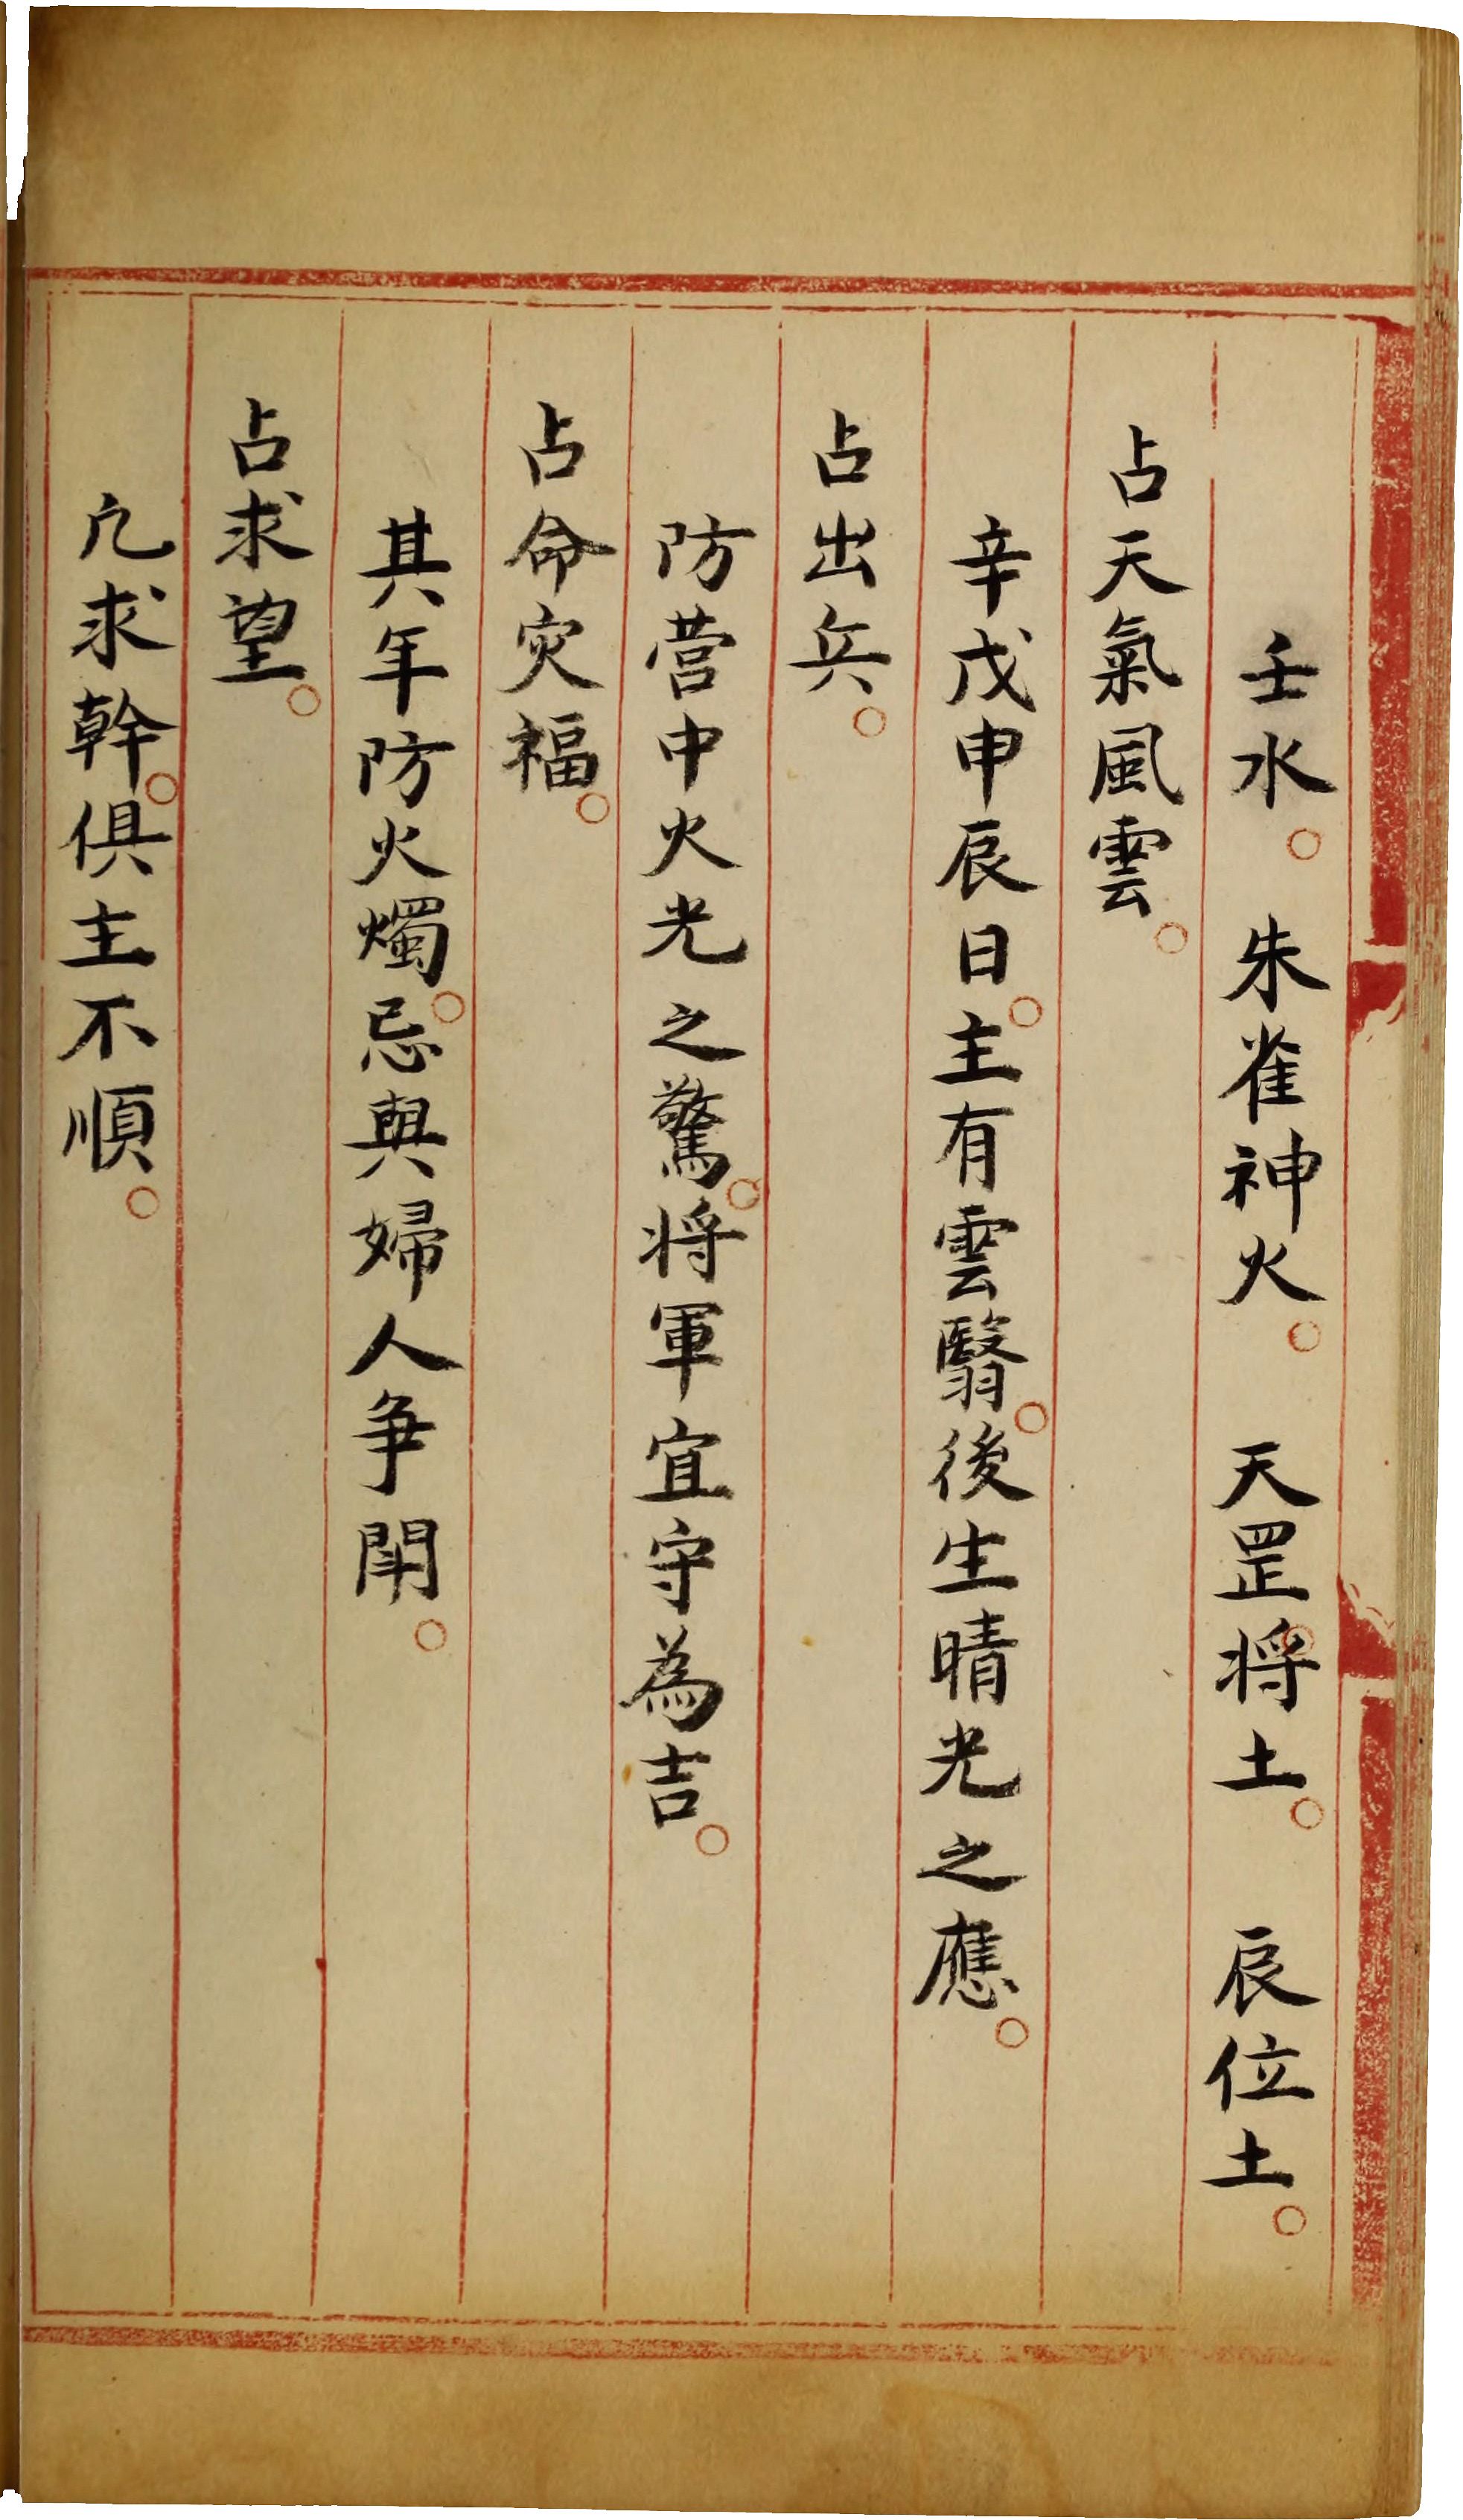 壬水。朱雀神火。天罡將土。辰位土。
占天氣風雲。
辛戊申辰日。主有雲翳。後生晴光之應。
占出兵。
防营中火光之驚。将軍宜守為吉。
占命灾福。
其年防火燭。忌與婦人争鬧。
占求望。
凢求幹。俱主不順。